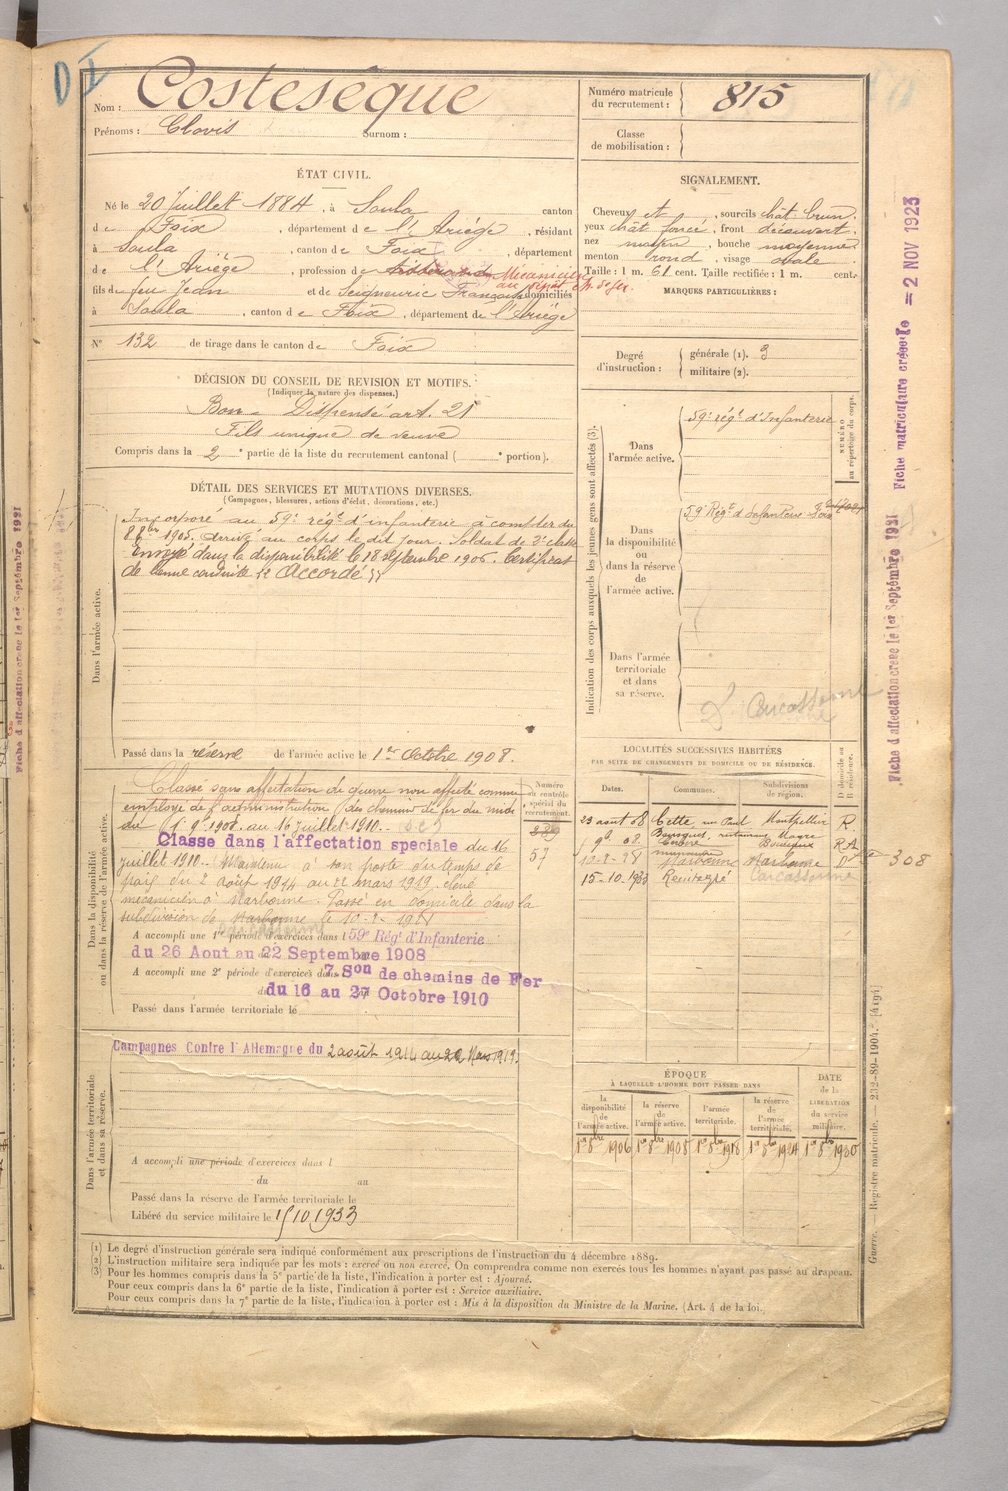 DI
Nom : Costesèque
Prénoms : Clovis Surnom :
Numéro matricule du recrutement : 815
Classe de mobilisation :
ÉTAT CIVIL.
Né le 20 Juillet 1884, à Soula canton
de Foix, département de l'Ariège, résidant
à Soula, canton de Foix, département
de l'Ariège, profession de Mécanicien
au dépôt ch. de fer.
fils de feu Jean et de Seigneuric Françoise domiciliés
à Soula, canton de Foix, département de l'Ariège
N° 132 de tirage dans le canton de Foix
SIGNALEMENT.
Cheveux et, sourcils chât brun.
yeux chât foncé, front découvert.
nez moyen, bouche moyenne
menton rond, visage ovale
Taille : 1 m. 61 cent. Taille rectifiée : 1 m. cent.
MARQUES PARTICULIÈRES :
Degré d'instruction : générale (1). 3
militaire (2).
DÉCISION DU CONSEIL DE REVISION ET MOTIFS.
(Indiquer la nature des dispenses.)
Bon - Dispensé art. 21
Fils unique de veuve
Compris dans la 2e partie de la liste du recrutement cantonal ( e portion).
DÉTAIL DES SERVICES ET MUTATIONS DIVERSES.
(Campagnes, blessures, actions d'éclat, décorations, etc.)
Dans l'armée active.
Incorporé au 59e régt d'infanterie à compter du
8 8bre 1905. Arrivé au corps le dit jour. Soldat de 2e classe
Envoyé dans la disponibilité le 18 septembre 1906. Certificat
de bonne conduite "Accordé"
Passé dans la réserve de l'armée active le 1er Octobre 1908.
Indication des corps auxquels les jeunes gens sont affectés (3).
NUMÉRO au répertoire du corps.
Dans l'armée active.
59e régt d'Infanterie
Dans la disponibilité ou dans la réserve de l'armée active.
59 Régt d'Infanterie Foix
Dans l'armée territoriale et dans sa réserve.
Carcassonne
Dans la disponibilité ou dans la réserve de l'armée active.
Numéro au contrôle spécial du recrutement.
Classé sans affectation de guerre non affecté comme
employé de l'administration des chemins de fer du midi
du 1.9.1908. au 16 juillet 1910.
Classé dans l'affectation speciale du 16
juillet 1910. Maintenu à son poste du temps de
paix du 2 août 1914 au 22 mars 1919. élève
mécanicien à Narbonne. Passé en domicile dans la
subdivision de Narbonne le
57
A accompli une 1re période d'exercices dans l 59e Régt d'Infanterie
du 26 Aout au 22 Septembre 1908
A accompli une 2e période d'exercices dans 7. Son de chemins de Fer
du 16 au 27 Octobre 1910
Passé dans l'armée territoriale le
LOCALITÉS SUCCESSIVES HABITÉES
PAR SUITE DE CHANGEMENTS DE DOMICILE OU DE RÉSIDENCE.
Dates. Communes. Subdivisions de région. D domicile ou R résidence.
23 août 08 Cette Montpellier R
15-10-1933 Carcassonne
308
Dans l'armée territoriale et dans sa réserve.
Campagnes Contre l'Allemagne du 2 août 1914 au 22 Mars 1919.
A accompli une période d'exercices dans l
du au
Passé dans la réserve de l'armée territoriale le
Libéré du service militaire le 15/10 1933
ÉPOQUE
À LAQUELLE L'HOMME DOIT PASSER DANS
la disponibilité de l'armée active. la réserve de l'armée active. l'armée territoriale. la réserve de l'armée territoriale.
DATE de la LIBÉRATION du service militaire.
1er 8bre 1906 1er 8bre 1908 1er 8bre 1918 1er 8bre 1924 1er 8bre 1930
(1) Le degré d'instruction générale sera indiqué conformément aux prescriptions de l'instruction du 4 décembre 1889.
(2) L'instruction militaire sera indiquée par les mots : exercé ou non exercé. On comprendra comme non exercés tous les hommes n'ayant pas passé au drapeau.
(3) Pour les hommes compris dans la 5e partie de la liste, l'indication à porter est : Ajourné.
Pour ceux compris dans la 6e partie de la liste, l'indication à porter est : Service auxiliaire.
Pour ceux compris dans la 7e partie de la liste, l'indication à porter est : Mis à la disposition du Ministre de la Marine. (Art. 4 de la loi.)
Guerre. — Registre matricule. — 232-89-1904. [4194]
Fiche matriculaire créée le = 2 NOV 1923
Fiche d'affectation créée le 1er Septembre 1921
Fiche d'affectation créée le 1er Septembre 1921